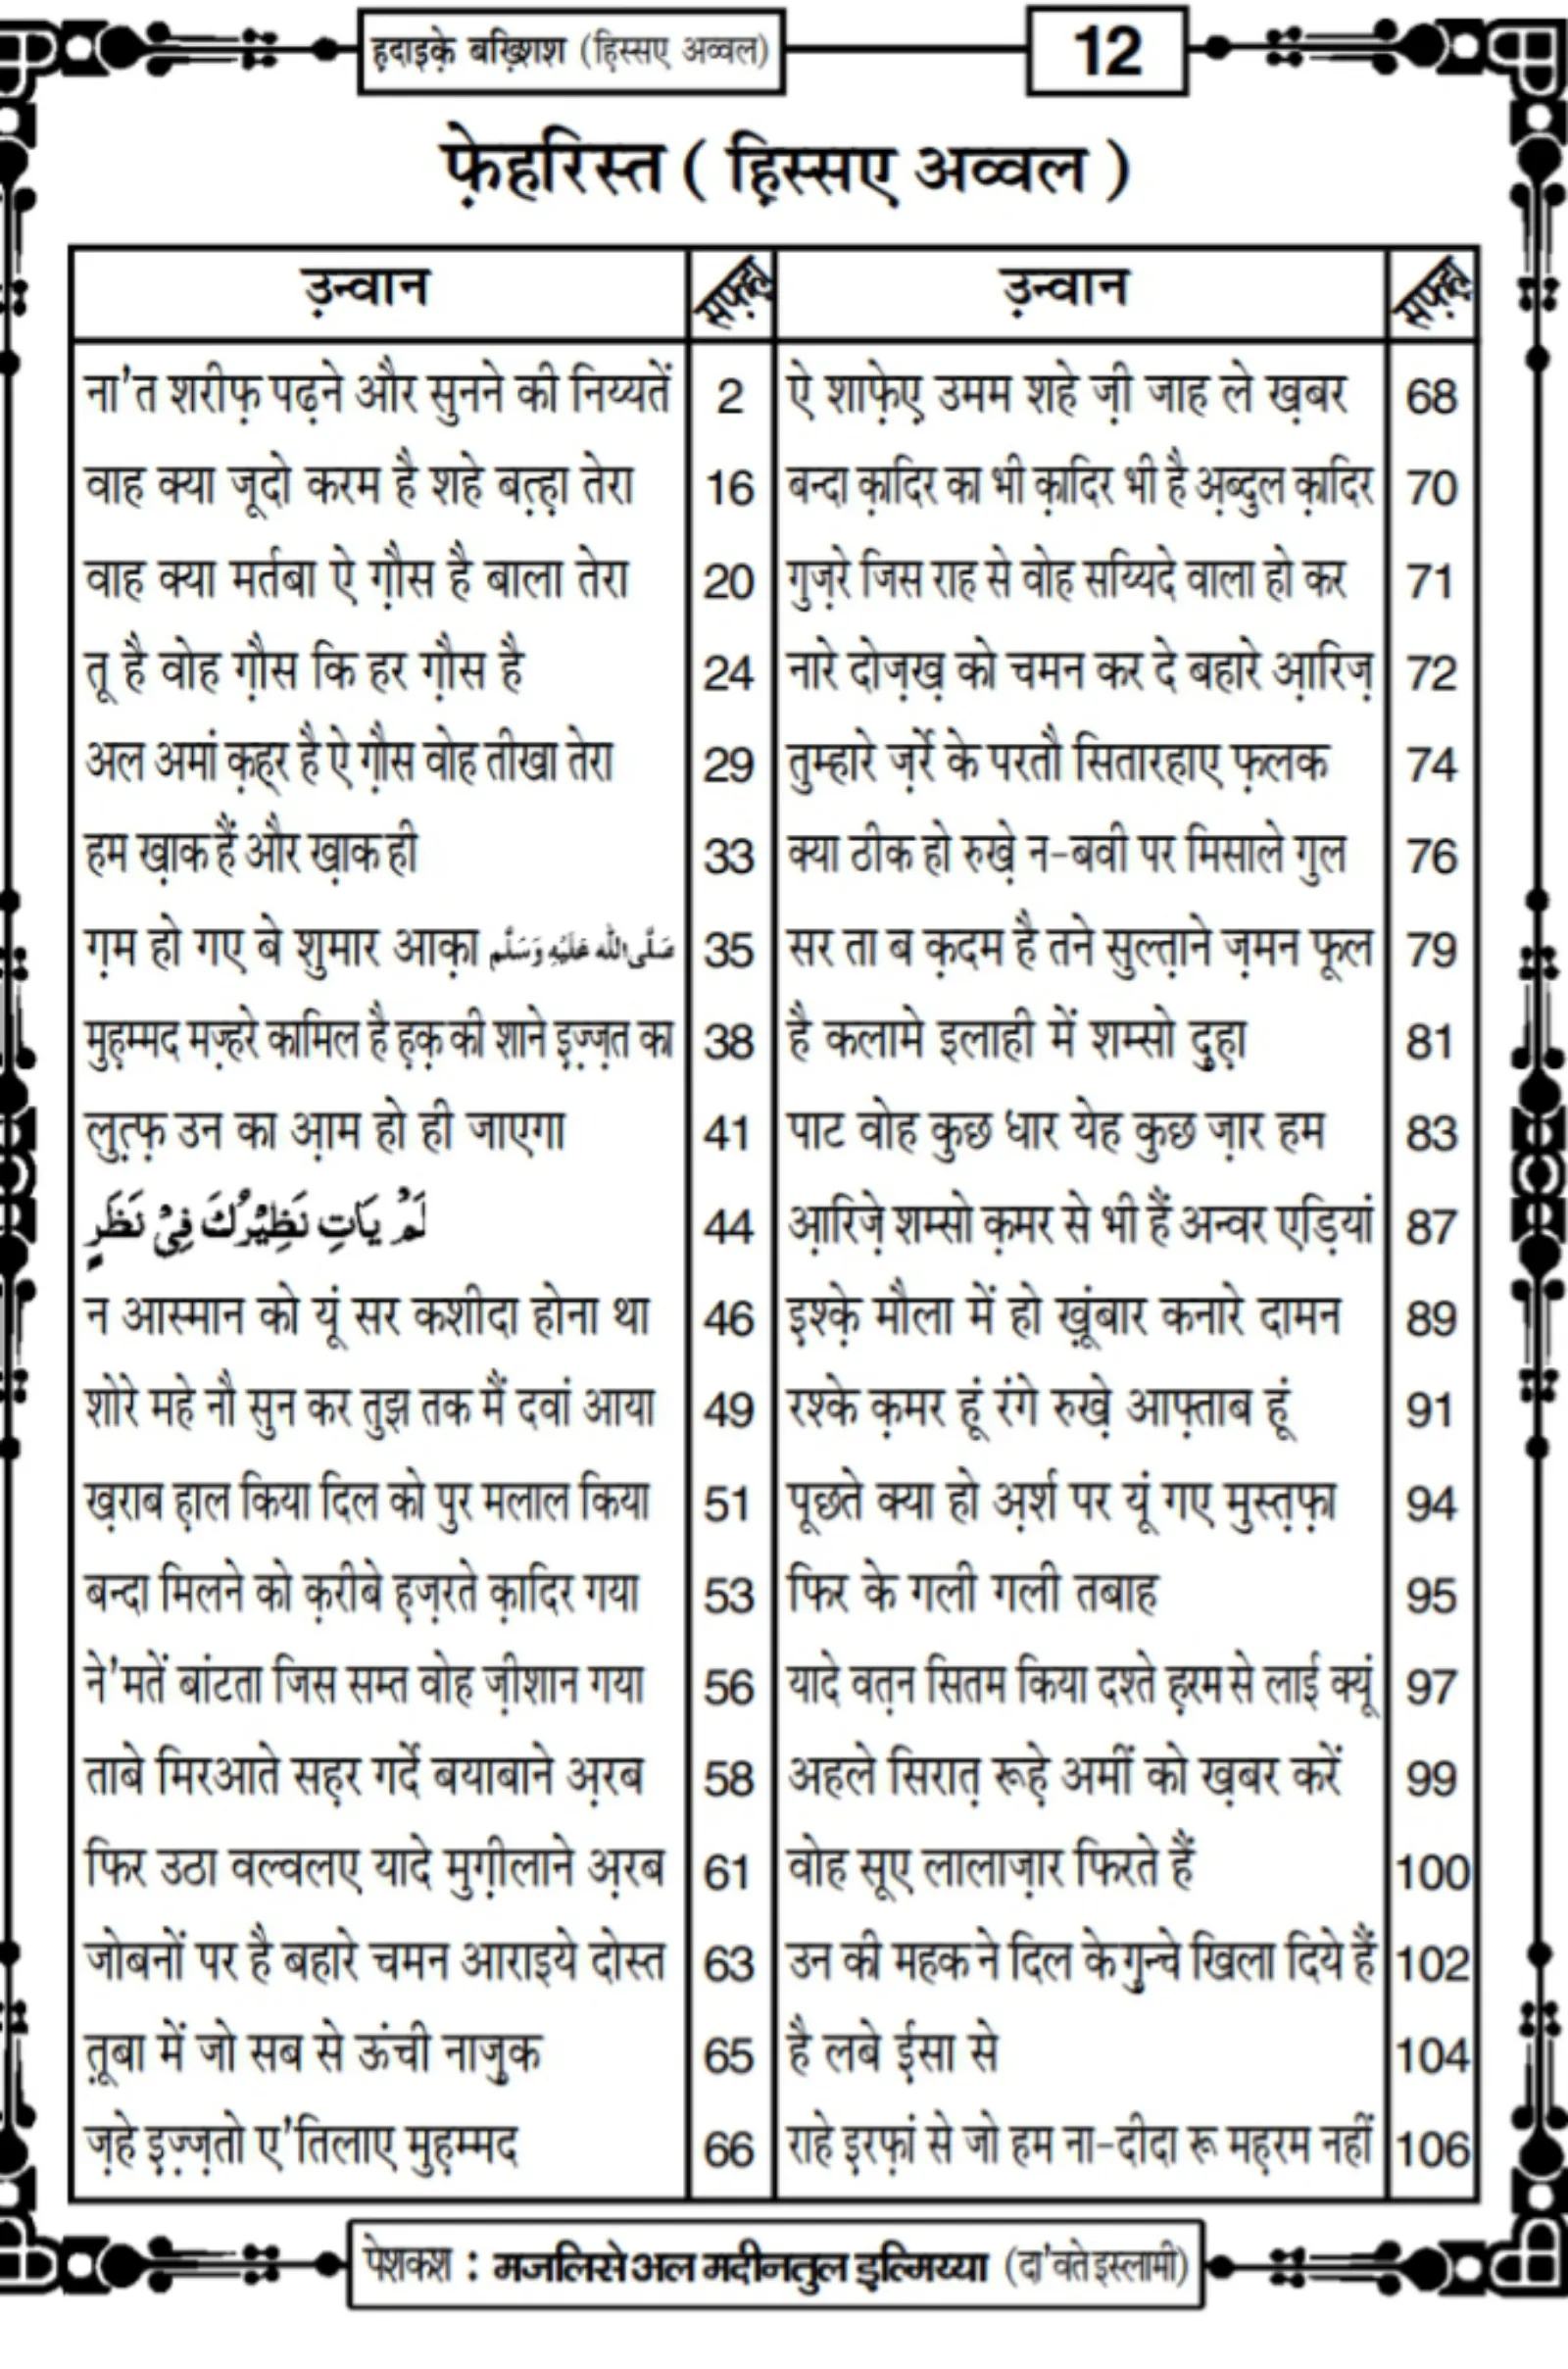 ह़दाइके़ बख़्शिश (हिस्सए अव्वल)
12
फ़ेहरिस्त ( ह़िस्सए अव्वल )
उ़न्वान सफ़्ह़ा उ़न्वान सफ़्ह़ा
ना'त शरीफ़ पढ़ने और सुनने की निय्यतें 2 ऐ शाफ़ेए़ उमम शहे ज़ी जाह ले ख़बर 68
वाह क्या जूदो करम है शहे बत़्ह़ा तेरा 16 बन्दा क़ादिर का भी क़ादिर भी है अ़ब्दुल क़ादिर 70
वाह क्या मर्तबा ऐ ग़ौस है बाला तेरा 20 गुज़रे जिस राह से वोह सय्यिदे वाला हो कर 71
तू है वोह ग़ौस कि हर ग़ौस है 24 नारे दोज़ख़ को चमन कर दे बहारे आ़रिज़ 72
अल अमां क़ह्र है ऐ ग़ौस वोह तीखा तेरा 29 तुम्हारे ज़र्रे के परतौ सितारहाए फ़लक 74
हम ख़ाक हैं और ख़ाक ही 33 क्या ठीक हो रुख़े न-बवी पर मिसाले गुल 76
ग़म हो गए बे शुमार आक़ा صَلَّی اللّٰہ عَلَیْہِ وَسَلَّم 35 सर ता ब क़दम है तने सुल्त़ाने ज़मन फूल 79
मुह़म्मद मज़्हरे कामिल है ह़क़ की शाने इ़ज़्ज़त का 38 है कलामे इलाही में शम्सो दुह़ा 81
लुत़्फ़ उन का आ़म हो ही जाएगा 41 पाट वोह कुछ धार येह कुछ ज़ार हम 83
لَمْ یَاتِ نَظِیْرُکَ فِیْ نَظَرٍ 44 आ़रिज़े शम्सो क़मर से भी हैं अन्वर एड़ियां 87
न आस्मान को यूं सर कशीदा होना था 46 इ़श्क़े मौला में हो ख़ूंबार कनारे दामन 89
शोरे महे नौ सुन कर तुझ तक मैं दवां आया 49 रश्के क़मर हूं रंगे रुख़े आफ़्ताब हूं 91
ख़राब ह़ाल किया दिल को पुर मलाल किया 51 पूछते क्या हो अ़र्श पर यूं गए मुस्त़फ़ा 94
बन्दा मिलने को क़रीबे ह़ज़रते क़ादिर गया 53 फिर के गली गली तबाह 95
ने'मतें बांटता जिस सम्त वोह ज़ीशान गया 56 यादे वत़न सितम किया दश्ते ह़रम से लाई क्यूं 97
ताबे मिरआते सह़र गर्दे बयाबाने अ़रब 58 अहले सिरात़ रूह़े अमीं को ख़बर करें 99
फिर उठा वल्वलए यादे मुग़ीलाने अ़रब 61 वोह सूए लालाज़ार फिरते हैं 100
जोबनों पर है बहारे चमन आराइये दोस्त 63 उन की महक ने दिल के ग़ुन्चे खिला दिये हैं 102
त़ूबा में जो सब से ऊंची नाजुक 65 है लबे ई़सा से 104
ज़हे इ़ज़्ज़तो ए'तिलाए मुह़म्मद 66 राहे इ़रफ़ां से जो हम ना-दीदा रू मह़रम नहीं 106
पेशकश : मजलिसे अल मदीनतुल इ़ल्मिय्या (दा'वते इस्लामी)